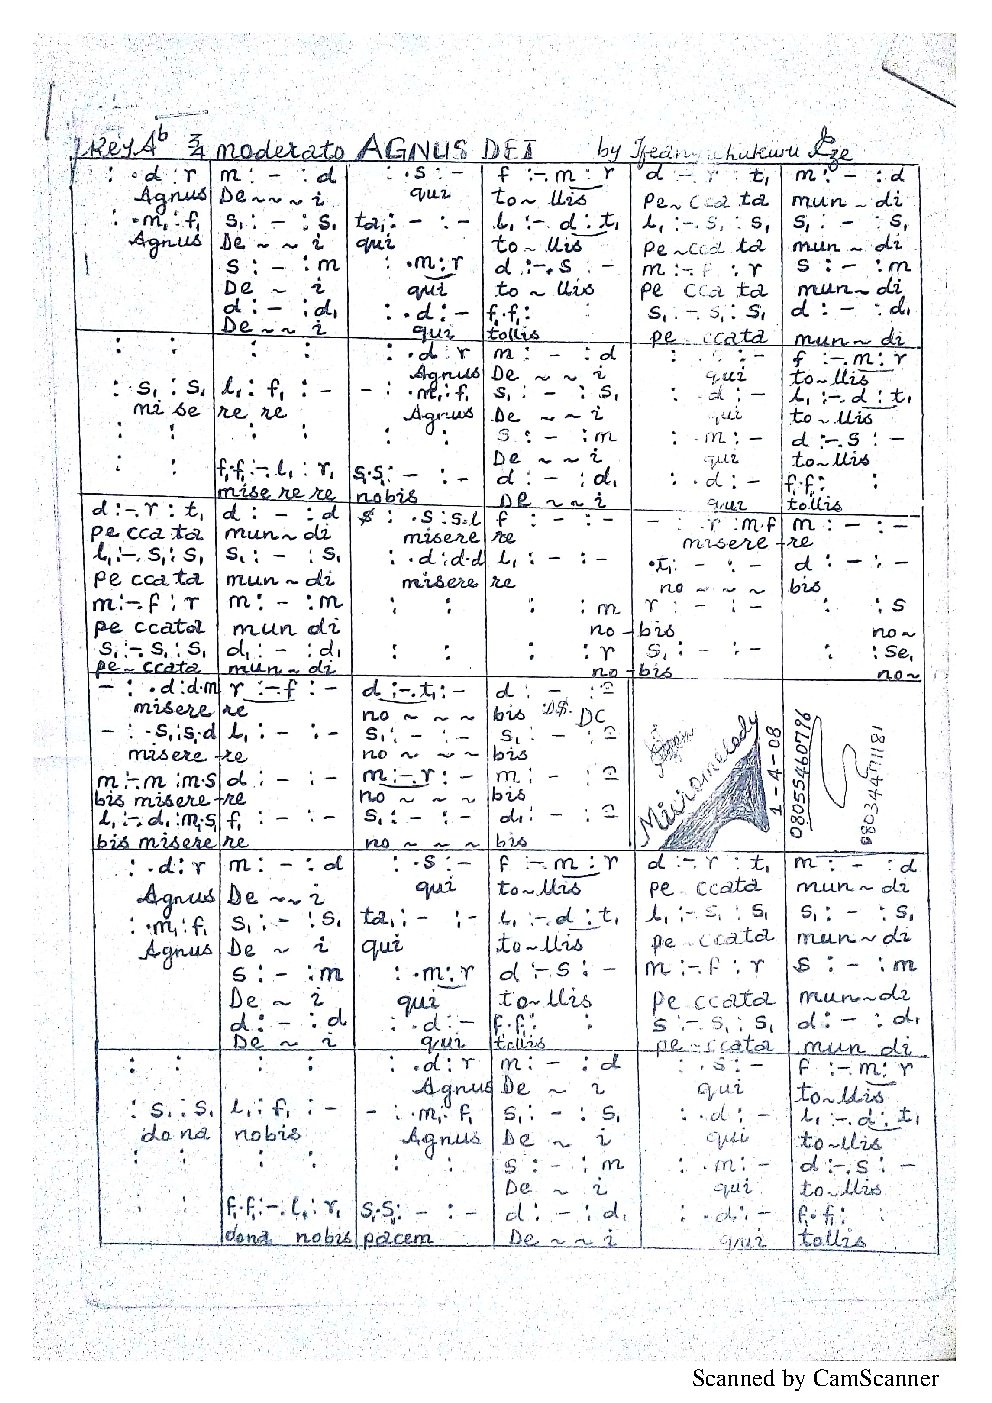 Key Ab 3/4 moderato AGNUS DEI by Ifeanyichukwu Eze
: .d : r | m : - : d | : .s : - | f :-. m : r | d :-. r : t, | m : - : d
Agnus De~~~i qui to~llis pe~ccata mun~di
: .m, : f, | s, : - : s, | ta, : - : - | l, :-. d : t, | l, :-. s, : s, | s, : - : s,
Agnus De~~i qui to~llis pe~ccata mun~di
s : - : m | : .m : r | d :-. s : - | m :-. f : r | s : - : m
De~i qui to~llis pe ccata mun~di
d : - : d, | : .d : - | f,. f, : | s, :-. s, : s, | d : - : d,
De~~i qui tollis pe ccata mun~di
: : | : : | : .d : r | m : - : d | : .s : - | f :-. m : r
Agnus De~~i qui to~llis
: s, : s, | l, : f, : - | - : .m, : f, | s, : - : s, | : .d : - | l, :-. d : t,
mi se re re Agnus De~~i qui to~llis
: : | : : | : : | s : - : m | : .m : - | d :-. s : -
De~~i qui to~llis
: : | f,. f, :-. l, : r, | s,. s, : - : - | d : - : d, | : .d : - | f,. f, :
mise re re nobis De~~i qui tollis
d :-. r : t, | d : - : d | $ : .s : s.l | f : - : - | - : .r : m.f | m : - : -
pe ccata mun~di misere re misere-re
l, :-. s, : s, | s, : - : s, | : .d : d.d | l, : - : - | .t, : - : - | d : - : -
pe ccata mun~di misere re no~~~ bis
m :-. f : r | m : - : m | : : | : : m | r : - : - | : : s
pe ccata mun di no-bis no~
s, :-. s, : s, | d, : - : d, | : : | : : r | s, : - : - | : : se,
pe~ccata mun~di no-bis no~
- : .d : d.m | r :-. f : - | d :-. t, : - | d : - :
misere re no~~~ bis D$. DC
- : .s, : s,.d | l, : - : - | s, : - : - | s, : - :
misere-re no~~~ bis
m :-. m : m.s | d : - : - | m :-. r : - | m : - :
bis misere-re no~~~ bis
l, :-. d, : m,.s, | f, : - : - | s, : - : - | d, : - :
bis misere re no~~~ bis
Micromelody
1-4-08
08055460796
08034471181
: .d : r | m : - : d | : .s : - | f :-. m : r | d :-. r : t, | m : - : d
Agnus De~~i qui to~llis pe ccata mun~di
: .m, : f, | s, : - : s, | ta, : - : - | l, :-. d : t, | l, :-. s, : s, | s, : - : s,
Agnus De~i qui to~llis pe-ccata mun~di
s : - : m | : .m : r | d :-. s : - | m :-. f : r | s : - : m
De~i qui to~llis pe ccata mun~di
d : - : d | : .d : - | f,. f, : : | s :-. s, : s, | d : - : d,
De~i qui tollis pe-ccata mun di
: : | : : | : .d : r | m : - : d | : .s : - | f :-. m : r
Agnus De~i qui to~llis
: s, : s, | l, : f, : - | - : .m, : f, | s, : - : s, | : .d : - | l, :-. d : t,
dona nobis Agnus De~i qui to~llis
: : | : : | : : | s : - : m | : .m : - | d :-. s : -
De~i qui to~llis
: : | f,. f, :-. l, : r, | s,. s, : - : - | d : - : d, | : .d : - | f,. f, : :
dona nobis pacem De~~i qui tollis
Scanned by CamScanner